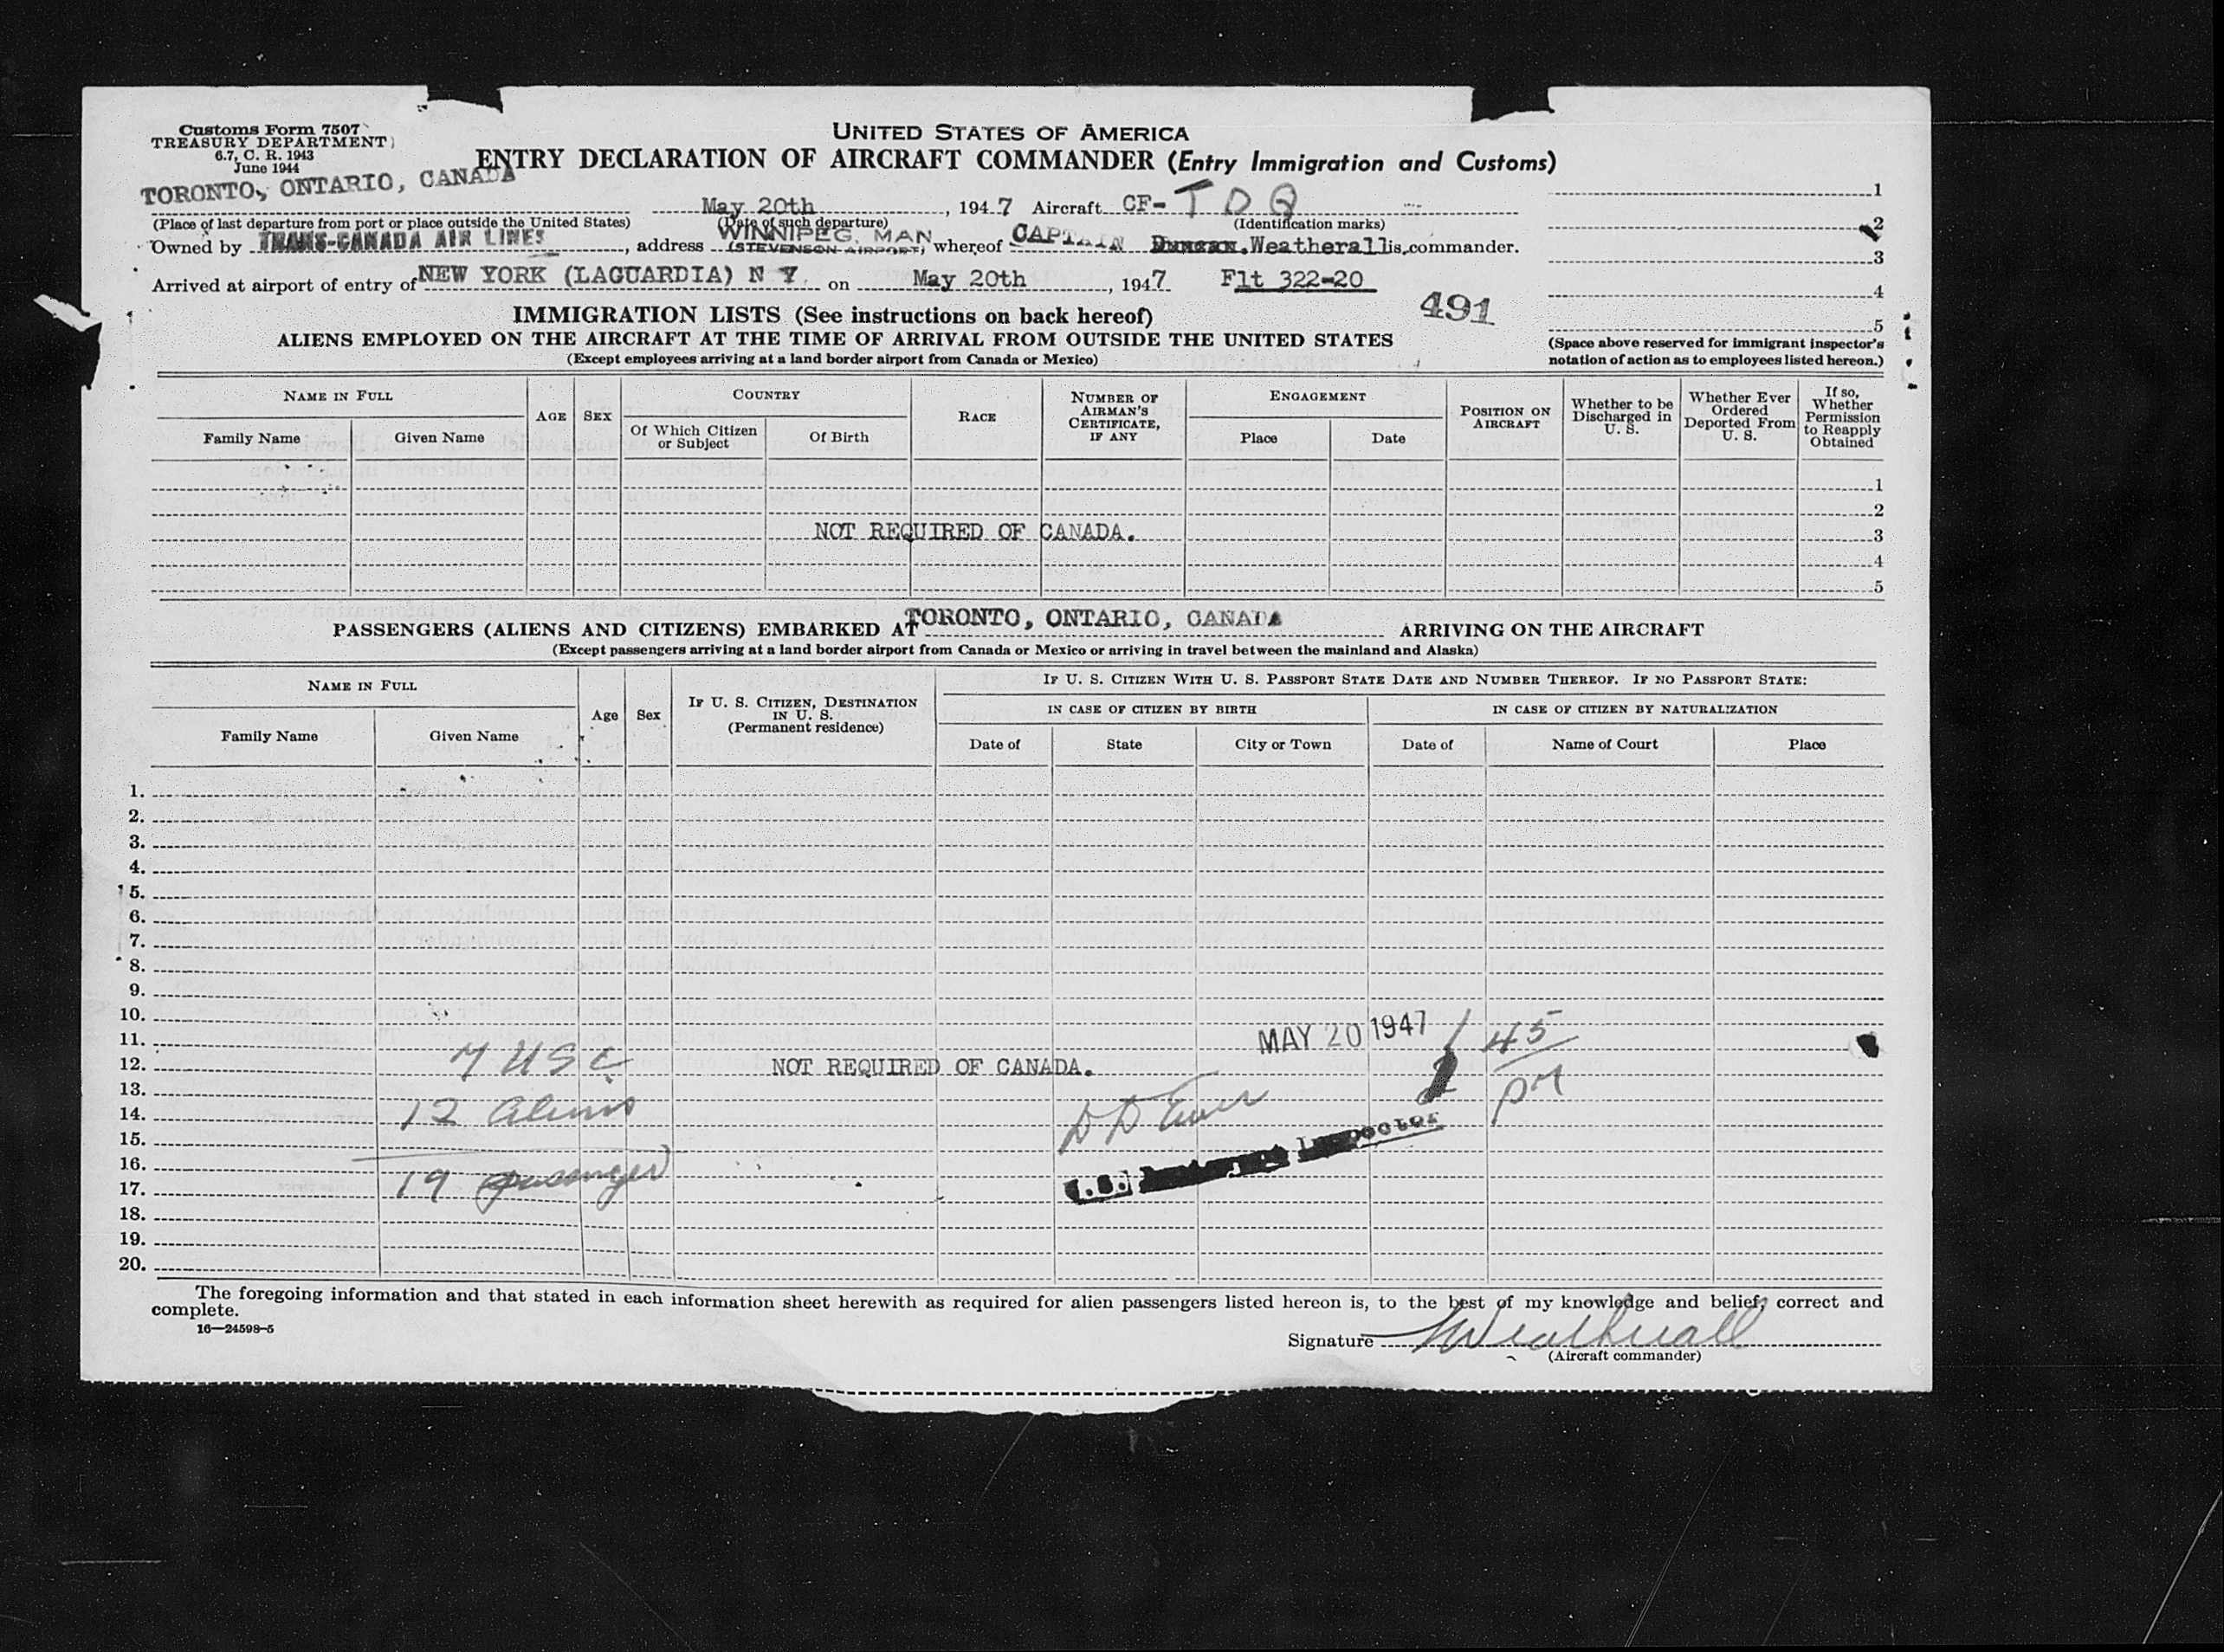 Customs Form 7507
TREASURY DEPARTMENT
6.7, C. R. 1943
June 1944
UNITED STATES OF AMERICA
ENTRY DECLARATION OF AIRCRAFT COMMANDER (Entry Immigration and Customs)
TORONTO, ONTARIO, CANADA
May 20th, 1947 Aircraft CF-TDQ
(Place of last departure from port or place outside the United States) (Date of such departure) (Identification marks)
Owned by TRANS-CANADA AIR LINES, address WINNIPEG, MAN (STEVENSON AIRPORT), whereof CAPTAIN Weatherall is commander.
Arrived at airport of entry of NEW YORK (LAGUARDIA) N Y. on May 20th, 1947 Flt 322-20
491
1
2
3
4
5
(Space above reserved for immigrant inspector's
notation of action as to employees listed hereon.)
IMMIGRATION LISTS (See instructions on back hereof)
ALIENS EMPLOYED ON THE AIRCRAFT AT THE TIME OF ARRIVAL FROM OUTSIDE THE UNITED STATES
(Except employees arriving at a land border airport from Canada or Mexico)
NAME IN FULL
Family Name
Given Name
AGE
SEX
COUNTRY
Of Which Citizen
or Subject
Of Birth
RACE
NUMBER OF
AIRMAN'S
CERTIFICATE,
IF ANY
ENGAGEMENT
Place
Date
POSITION ON
AIRCRAFT
Whether to be
Discharged in
U. S.
Whether Ever
Ordered
Deported From
U. S.
If so,
Whether
Permission
to Reapply
Obtained
1
2
NOT REQUIRED OF CANADA.
3
4
5
PASSENGERS (ALIENS AND CITIZENS) EMBARKED AT TORONTO, ONTARIO, CANADA ARRIVING ON THE AIRCRAFT
(Except passengers arriving at a land border airport from Canada or Mexico or arriving in travel between the mainland and Alaska)
NAME IN FULL
Family Name
Given Name
Age
Sex
IF U. S. CITIZEN, DESTINATION
IN U. S.
(Permanent residence)
IF U. S. CITIZEN WITH U. S. PASSPORT STATE DATE AND NUMBER THEREOF. IF NO PASSPORT STATE:
IN CASE OF CITIZEN BY BIRTH
IN CASE OF CITIZEN BY NATURALIZATION
Date of
State
City or Town
Date of
Name of Court
Place
1.
2.
3.
4.
5.
6.
7.
8.
9.
10.
11.
MAY 20 1947 1 45
12. 7 USC NOT REQUIRED OF CANADA.
PM
13.
14. 12 Aliens
15.
Inspector
16.
17. 19 passenger
18.
19.
20.
The foregoing information and that stated in each information sheet herewith as required for alien passengers listed hereon is, to the best of my knowledge and belief, correct and
complete.
16—24598-5
Signature Weatherall
(Aircraft commander)